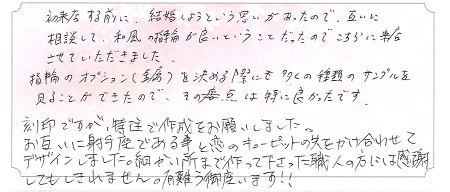 初来店する前に、結婚しようという思いがあったので、互いに
相談して、和風の指輪が良いということだったのでこちらに来店
させていただきました。
指輪のオプション(金属)を決める際にも多くの種類のサンプルを
見ることができたので、その点は特に良かったです。
刻印ですが、特注で作成をお願いしました。
お互いに射手座である事と恋のキューピットの矢をかけ合わせて
デザインしました。細かい所まで作って下さった職人の方には感謝
してもしきれません。有難う御座います!!